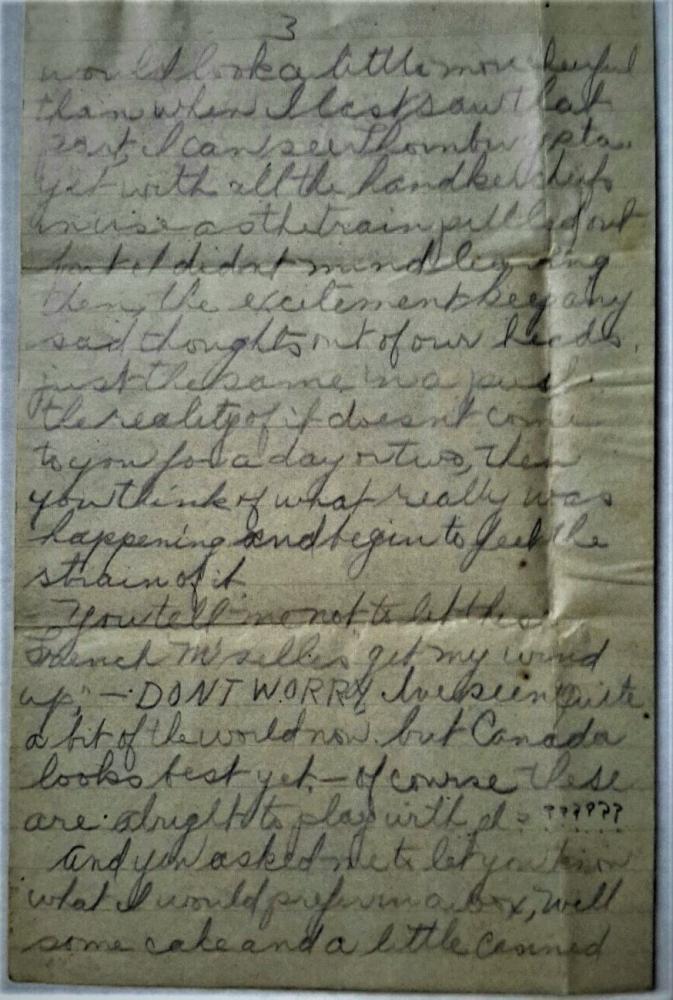 3
would look a little more cheerful
than when I last saw that
port, I can see Thornbury sta.
yet with all the handkerchiefs
in use as the train pulled out
but I didn't mind leaving
then, the excitement keep any
sad thoughts out of our heads.
just the same in a
the reality of it doesn't come
to you for a day or two, then
you think of what really was
happening and begin to feel the
strain of it
You tell me not to let the
French M'selles get my wind
up," — DONT WORRY I've seen quite
a bit of the world now but Canada
looks best yet. — Of course these
are alright to play with ???????
And you asked me to let you know
what I would prefer in a box, Well
some cake and a little canned